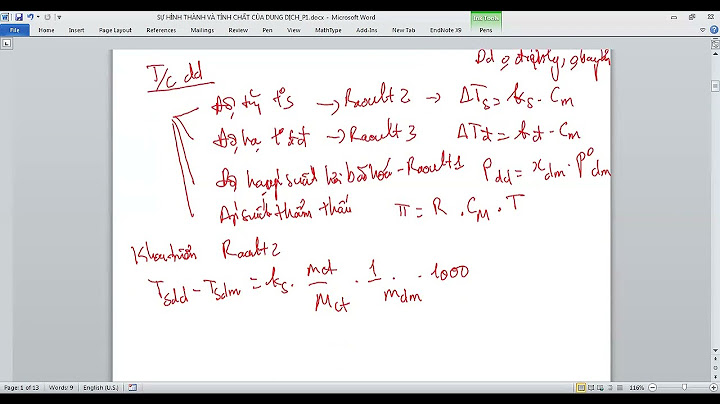 SỰ HÌNH THÀNH VÀ TÍNH CHẤT CỦA DUNG DỊCH_P1.docx - Microsoft Word
Ink Tools
File Home Insert Page Layout References Mailings Review View MathType Add-Ins EndNote X9 Pens
T/c dd
Dd ∉ điện ly, ∉ bay hơi
Độ tăng t°s → Raoult 2 → ΔTs = ks · Cm
Độ hạ t°đđ → Raoult 3 ΔTđ = kđ · Cm
Độ hạ áp suất hơi bão hoà - Raoult 1 Pdd = xdm · P°dm
Áp suất thẩm thấu π = R · CM · T
Khai triển Raoult 2
Tsdd - Tsdm = ks · mct/Mct · 1/mdm · 1000
Page: 1 of 13 Words: 9 English (U.S.) 116%